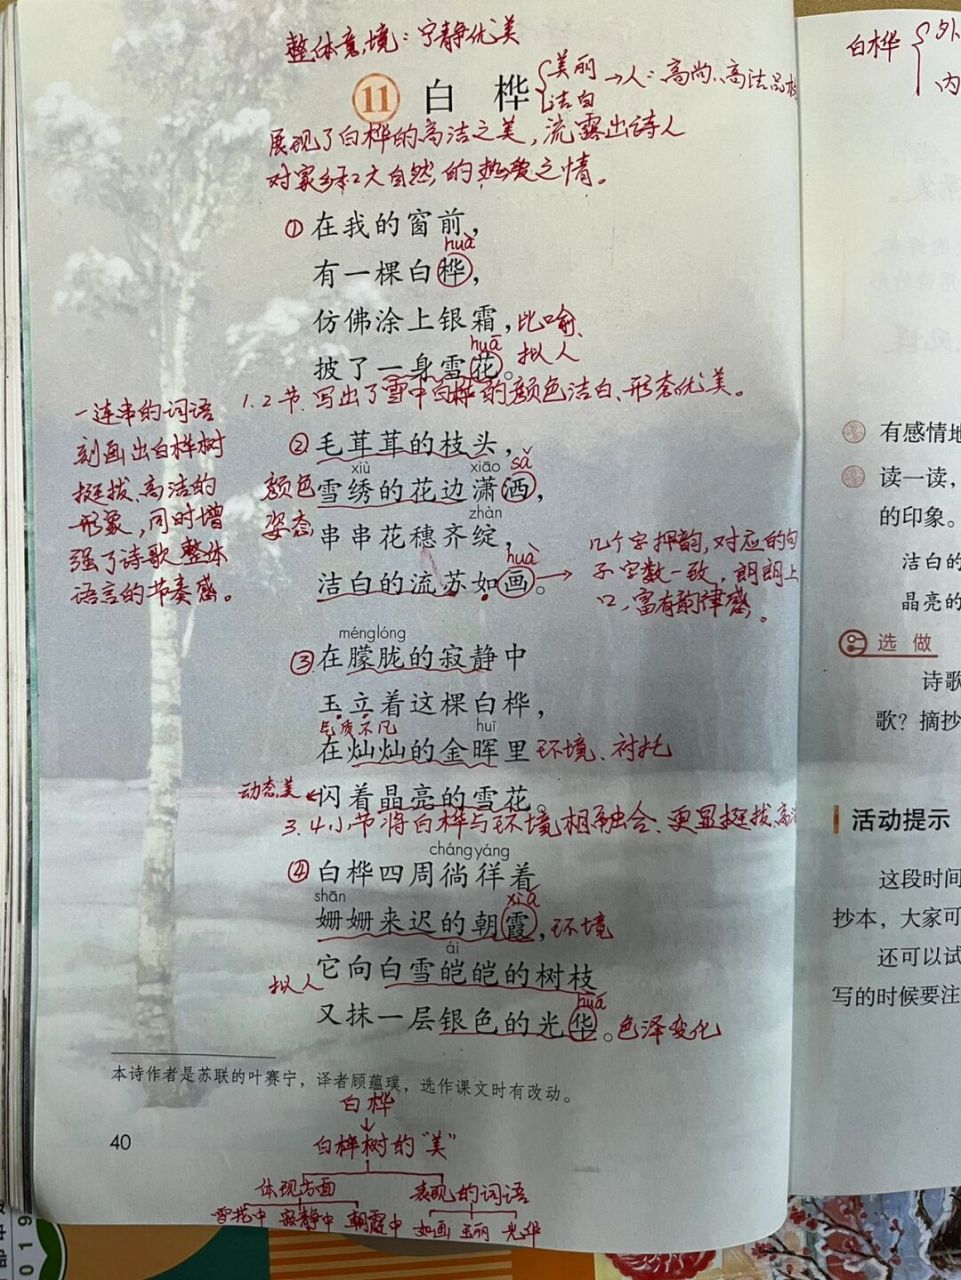 整体意境：宁静优美
11 白桦
美丽
洁白
→人：高尚、高洁品
展现了白桦的高洁之美，流露出诗人
对家乡和大自然的热爱之情。
①在我的窗前，
huà
有一棵白桦，
仿佛涂上银霜，比喻、
huā
拟人
披了一身雪花。
1.2节.写出了雪中白桦的颜色洁白、形态优美。
一连串的词语
刻画出白桦树
挺拔、高洁的
形象，同时增
强了诗歌整体
语言的节奏感。
②毛茸茸的枝头，
xiù xiāo sǎ
颜色
雪绣的花边潇洒，
zhàn
姿态
串串花穗齐绽，
huà
洁白的流苏如画。→
几个字押韵，对应的句
子字数一致，朗朗上
口、富有韵律感。
ménglóng
③在朦胧的寂静中
玉立着这棵白桦，
气质不凡
huī
在灿灿的金晖里 环境、衬托
动态美
闪着晶亮的雪花。
3.4小节将白桦与环境相融合、更显挺拔高
chángyáng
④白桦四周徜徉着
shān xiá
姗姗来迟的朝霞，环境
ái
它向白雪皑皑的树枝
拟人
huá
又抹一层银色的光华。色泽变化
本诗作者是苏联的叶赛宁，译者顾蕴璞，选作课文时有改动。
40
白桦
↓
白桦树的“美”
体现方面 表现的词语
雪花中 寂静中 朝霞中 如画 玉立 光华
白桦
外
内
有感情地
读一读，
的印象。
洁白的
晶亮的
选做
诗歌
歌？摘抄
活动提示
这段时间
抄本，大家可
还可以试
写的时候要注